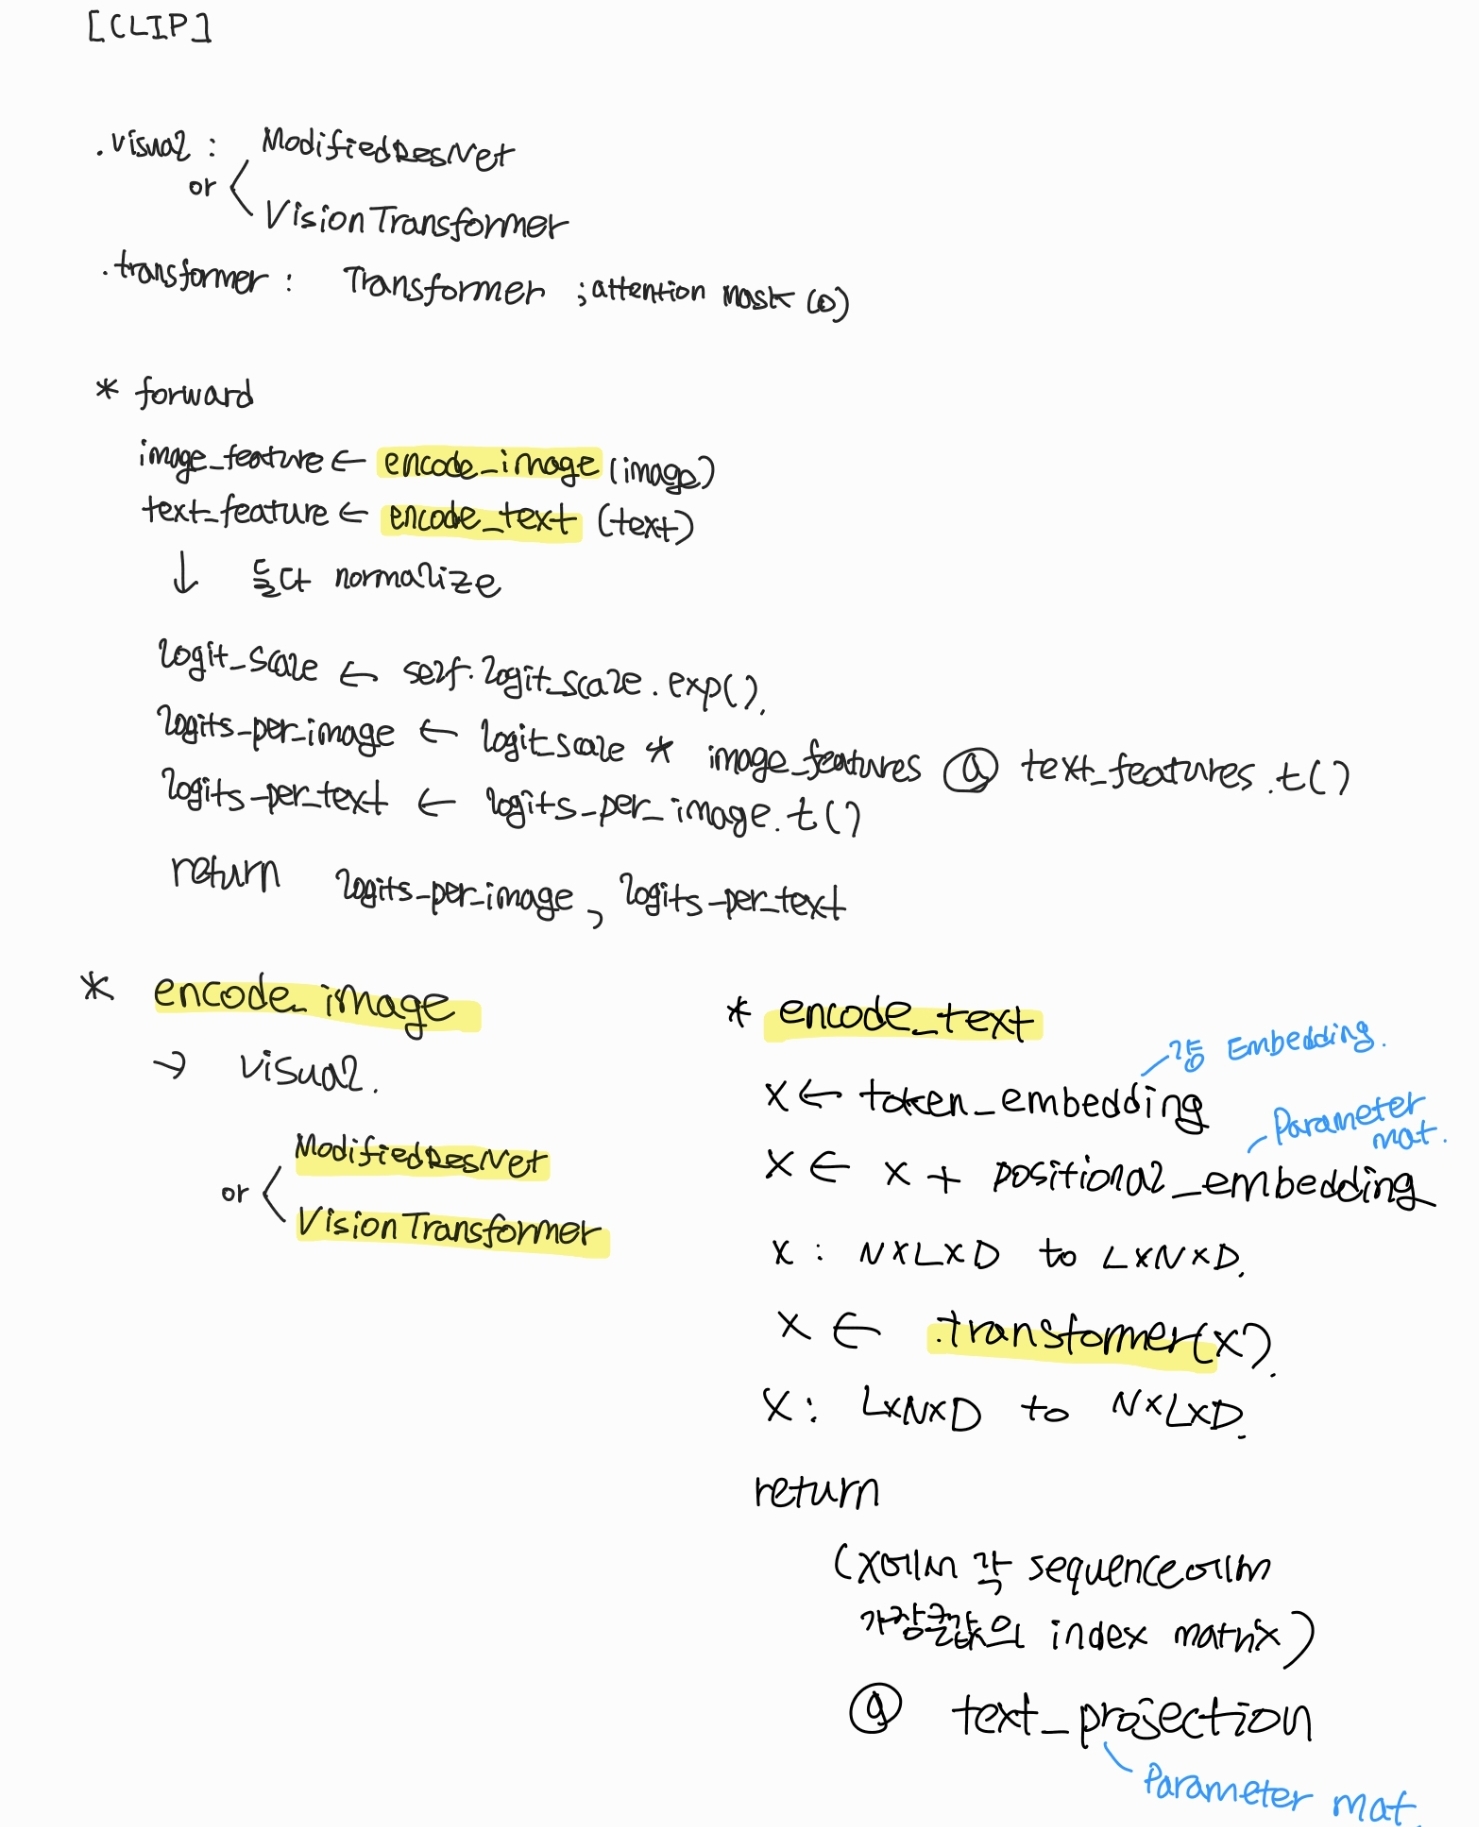 [CLIP]
.visual : ModifiedResNet
or
VisionTransformer
.transformer : Transformer ; attention mask (o)
* forward
image_feature ← encode_image (image)
text_feature ← encode_text (text)
↓ 둘다 normalize
logit_scale ← self.logit_scale.exp().
logits_per_image ← logit_scale * image_features @ text_features.t()
logits_per_text ← logits_per_image.t()
return logits_per_image, logits_per_text
* encode_image
→ visual.
ModifiedResNet
or
VisionTransformer
* encode_text
걍 Embedding.
x ← token_embedding
Parameter
mat.
x ← x + positional_embedding
x : N×L×D to L×N×D.
x ← .transformer(x).
x : L×N×D to N×L×D.
return
(x에서 각 sequence에서
가장큰값의 index matrix)
@ text_projection
Parameter mat.